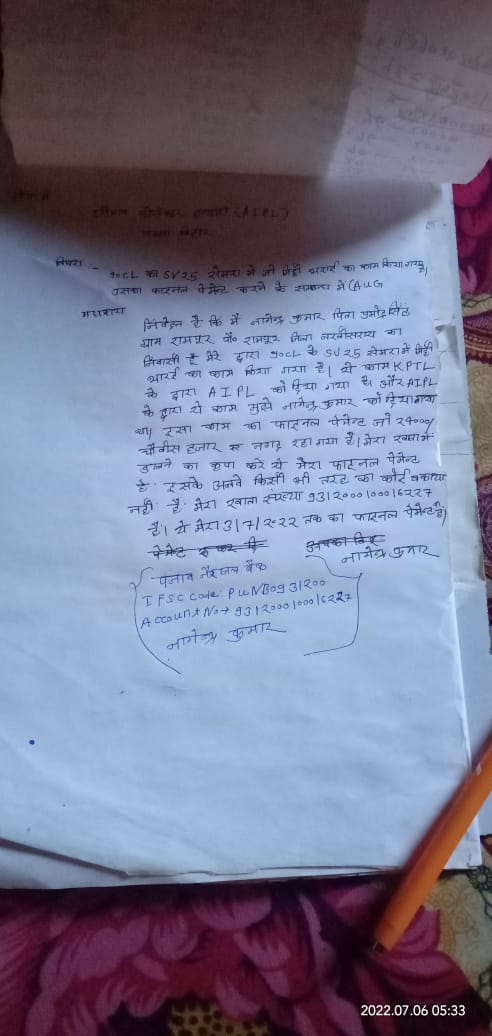 सेवा में
(AIPL)
विषय :- IOCL का SV25 सेमरा में जो मिट्टी भराई का काम किया गया है।
उसका फाइनल पेमेन्ट करने के सम्बन्ध में (AUG
महाशय
निवेदन है कि मैं नागेन्द्र कुमार पिता
ग्राम रामपुर पो० रामपुर जिला का
निवासी हूँ मेरे द्वारा IOCL के SV25 सेमरा में मिट्टी
भराई का काम किया गया है। ये काम KPTL
के द्वारा AIPL को दिया गया है। और AIPL
के द्वारा ये काम मुझे नागेन्द्र कुमार को दिया गया
था। इस काम का फाइनल पेमेन्ट जो 24000/
चौबीस हजार रू नगद रहा गया है। मेरा खाता में
डालने का कृपा करे ये मेरा फाइनल पेमेन्ट
है. इसके अलवे किसी भी तरह का कोई बकाया
नही है. मेरा खाता संख्या 9312000100016227
है। ये मेरा 3/7/2022 तक का फाइनल पेमेन्ट है।
नागेन्द्र कुमार
पंजाब नैशनल बैंक
IFSC Code: PUNB0931200
Account No → 9312000100016227
नागेन्द्र कुमार
2022.07.06 05:33